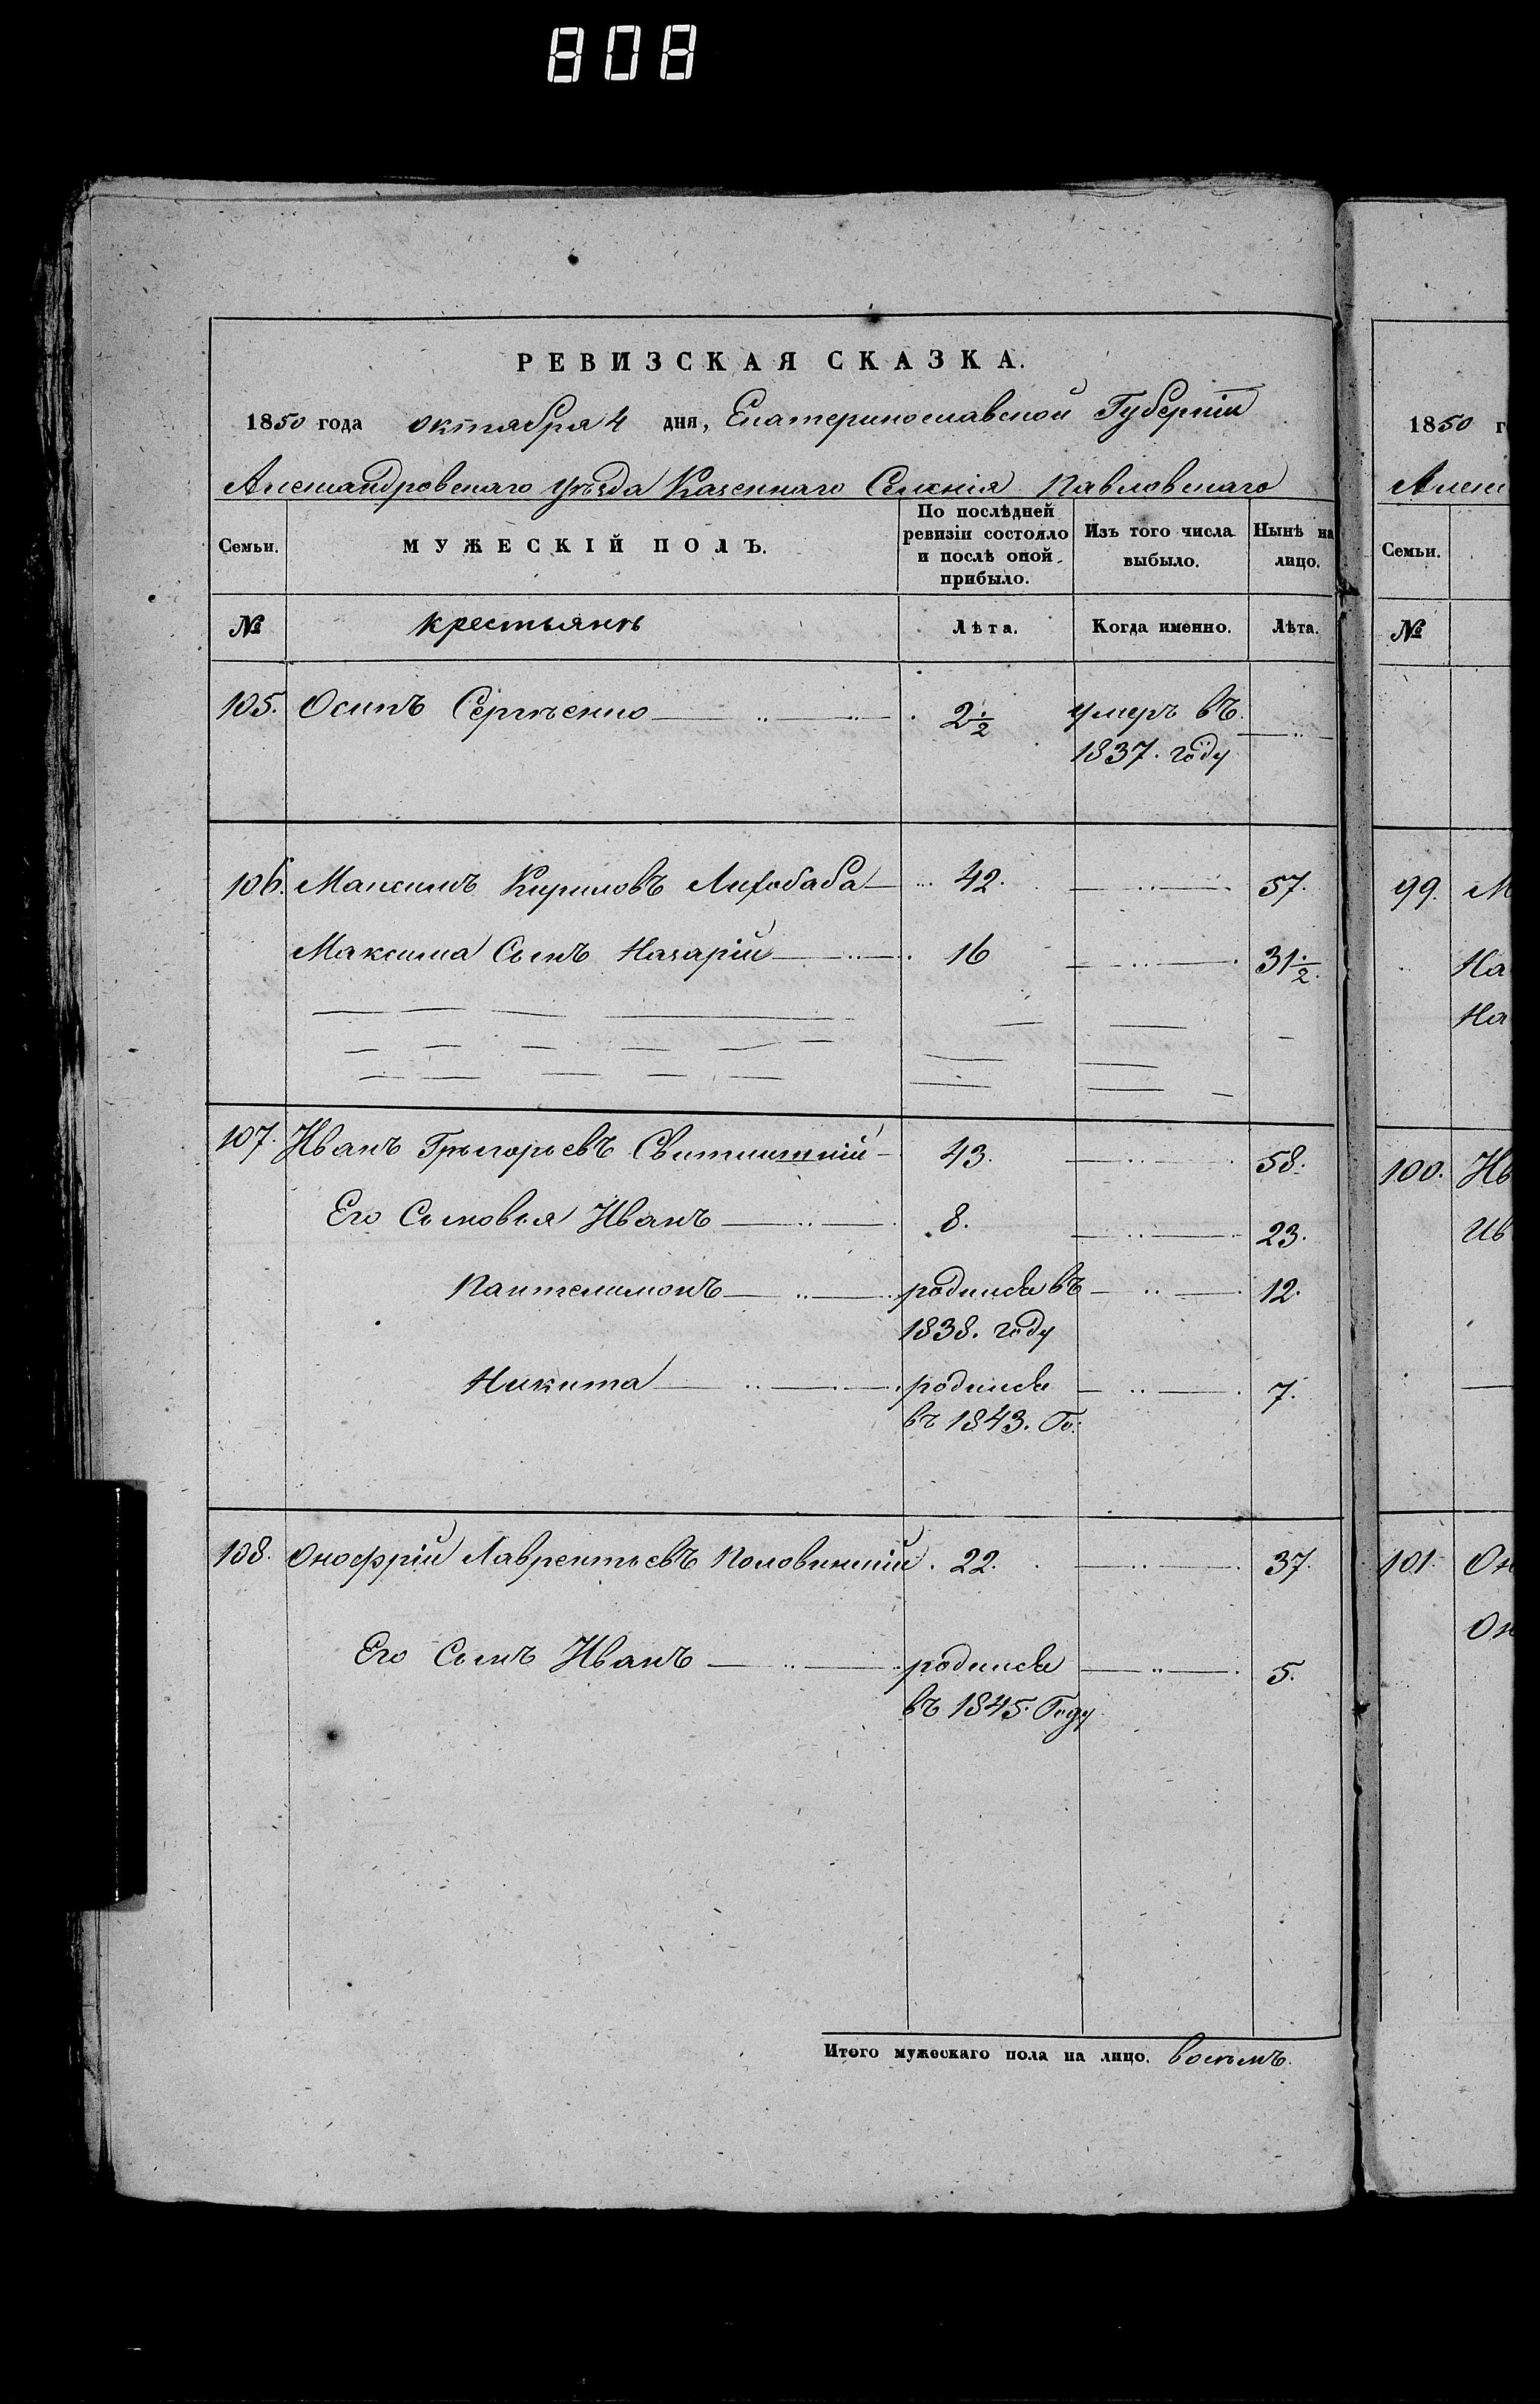 808
РЕВИЗСКАЯ СКАЗКА.
1850 года октября 4 дня, Екатеринославской Губерніи
Александровскаго уѣзда Казеннаго Селенія Павловскаго
Семьи. МУЖЕСКІЙ ПОЛЪ. По послѣдней ревизіи состояло и послѣ оной прибыло. Изъ того числа выбыло. Нынѣ на лицо.
№ крестьянъ Лѣта. Когда именно. Лѣта.
105. Осипъ Сергѣенко 2 1/2 умеръ въ
1837. году
106. Максимъ Кириловъ Лихобаба 42. 57.
Максима Сынъ Назарій 16 31 1/2.
107. Иванъ Григорьевъ 43. 58.
Его Сыновья Иванъ 8. 23.
Пантелимонъ родился въ 12.
1838. году
Никита родился 7.
въ 1843. Го:
108. Онофрій Лаврентьевъ Половинкій. 22. 37.
Его Сынъ Иванъ родился 5.
въ 1845. Году
Итого мужескаго пола на лицо. восемъ.
1850 г
Алекс
Семьи.
№
99. М
На
На
100. Ив
Ив
101. Он
Он